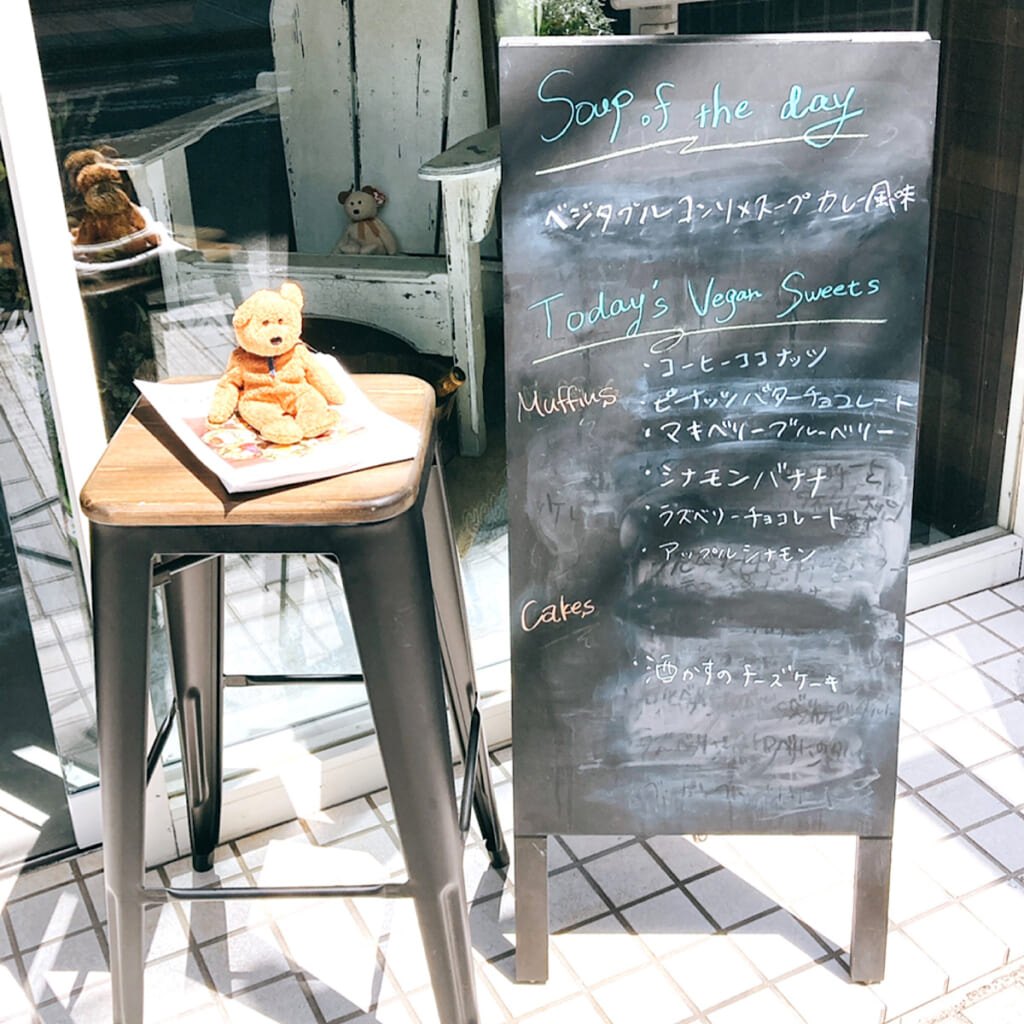 Soup of the day
ベジタブルコンソメスープカレー風味
Today's Vegan Sweets
・コーヒーココナッツ
Muffins ・ピーナッツバターチョコレート
・マキベリーブルーベリー
・シナモンバナナ
・ラズベリーチョコレート
・アップルシナモン
Cakes
・酒かすのチーズケーキ